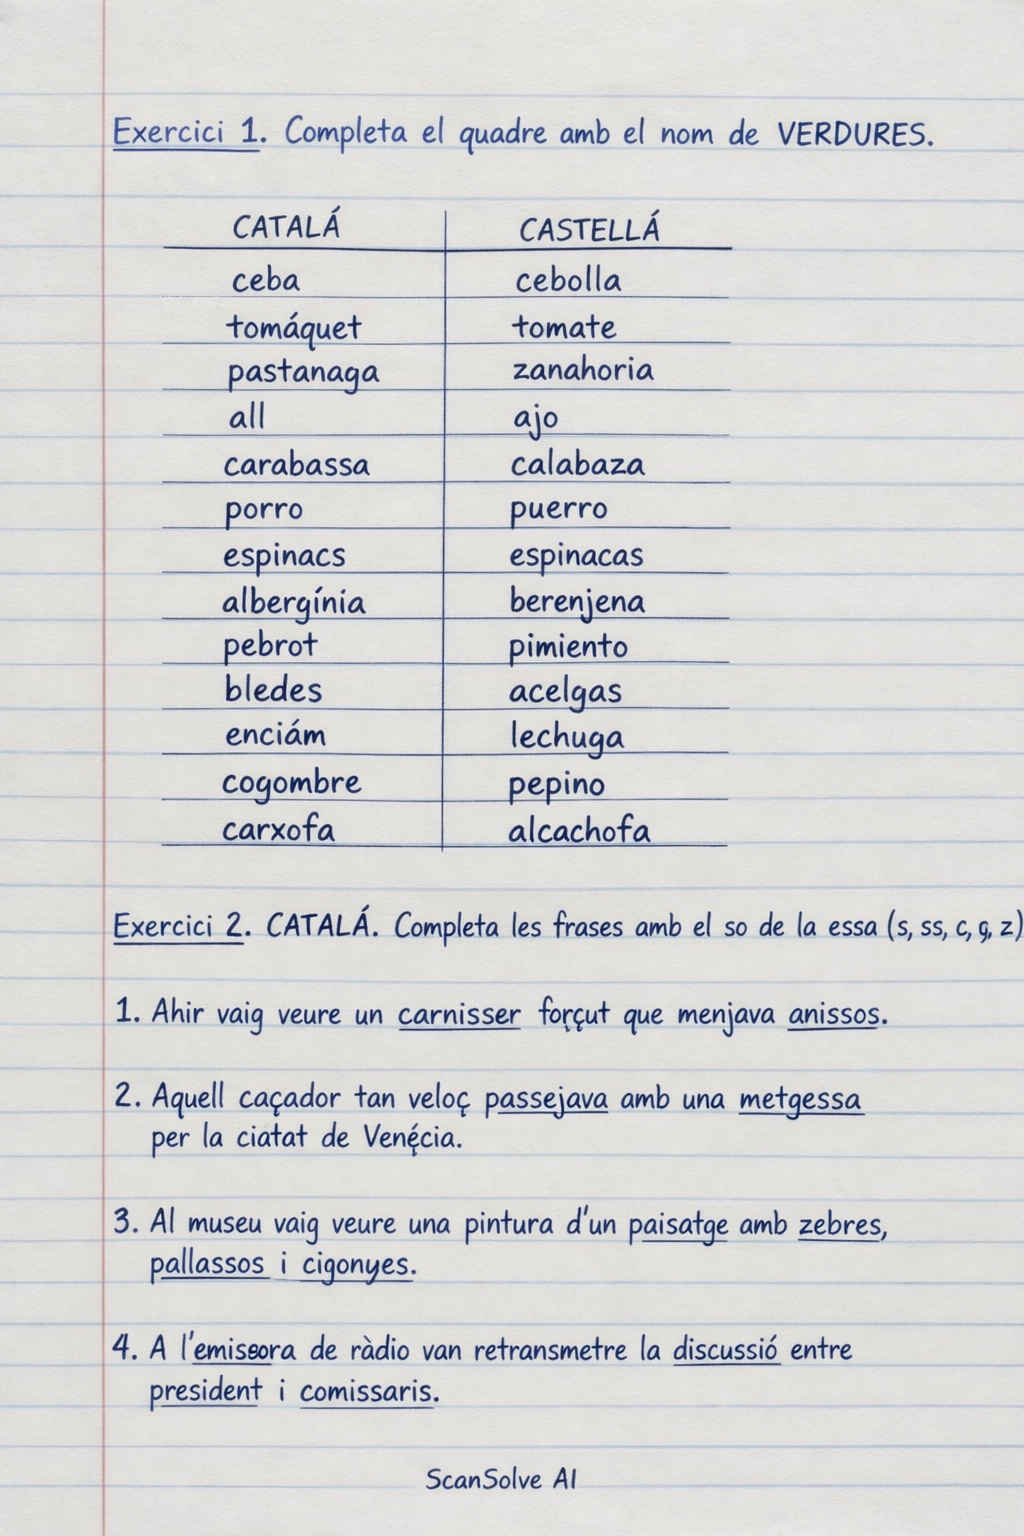 Exercici 1. Completa el quadre amb el nom de VERDURES.
CATALÁ CASTELLÁ
ceba cebolla
tomáquet tomate
pastanaga zanahoria
all ajo
carabassa calabaza
porro puerro
espinacs espinacas
albergínia berenjena
pebrot pimiento
bledes acelgas
enciám lechuga
cogombre pepino
carxofa alcachofa
Exercici 2. CATALÁ. Completa les frases amb el so de la essa (s, ss, c, ç, z)
1. Ahir vaig veure un carnisser forçut que menjava anissos.
2. Aquell caçador tan veloç passejava amb una metgessa
per la ciatat de Venécia.
3. Al museu vaig veure una pintura d'un paisatge amb zebres,
pallassos i cigonyes.
4. A l'emissora de ràdio van retransmetre la discussió entre
president i comissaris.
ScanSolve AI